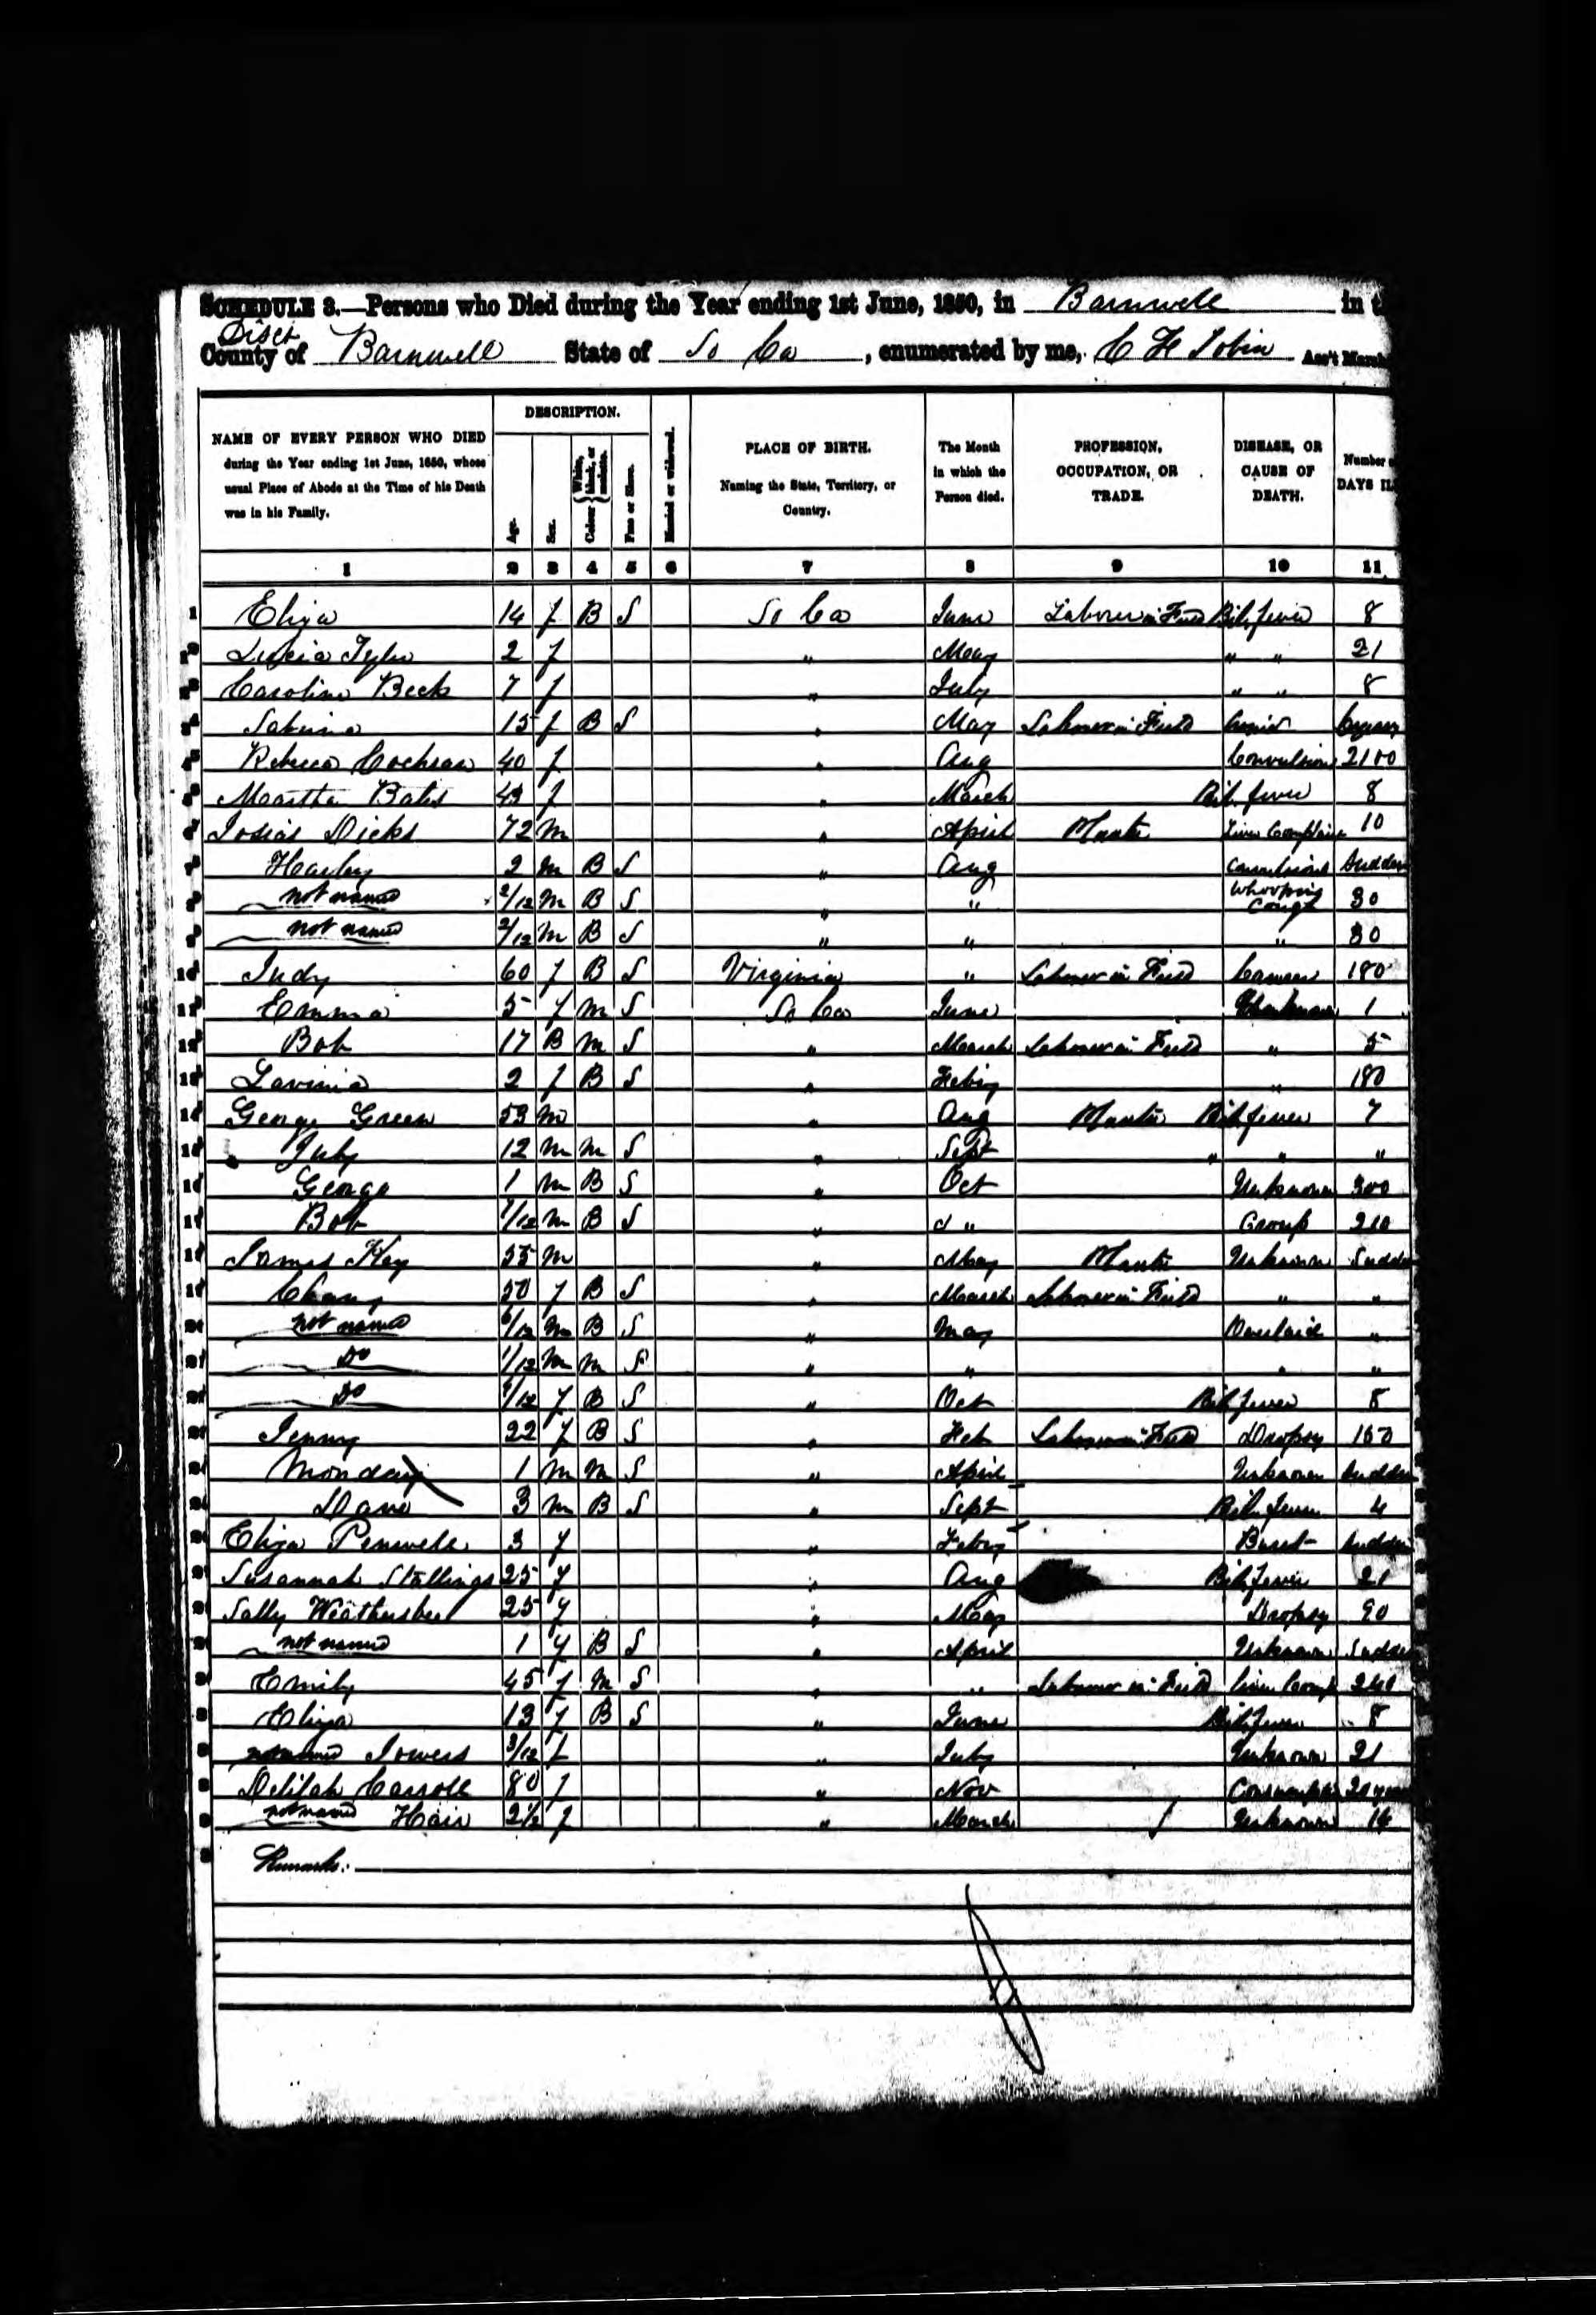 SCHEDULE 3.—Persons who Died during the Year ending 1st June, 1850, in Barnwell in t
Dist
County of Barnwell State of So Ca, enumerated by me, C H Tobin Ass't Marsh
NAME OF EVERY PERSON WHO DIED during the Year ending 1st June, 1850, whose usual Place of Abode at the Time of his Death was in his Family.
DESCRIPTION.
Age.
Sex.
Colour { White, black, or mulatto.
Free or Slave.
Married or widowed.
PLACE OF BIRTH. Naming the State, Territory, or Country.
The Month in which the Person died.
PROFESSION, OCCUPATION, OR TRADE.
DISEASE, OR CAUSE OF DEATH.
Number DAYS IL
1 2 3 4 5 6 7 8 9 10 11
1 Eliza 14 f B S So Ca June Laborer in Field Bil. fever 8
Lucia Tyler 2 f " May " " 21
Caroline Beck 7 f " July " " 8
Sabrina 15 f B S " May Laborer in Field
Rebecca Cochran 40 f " Aug Convulsions 2100
Martha Bates 43 f " March Bil. fever 8
Josias Dicks 72 m " April Liver Complaint 10
Harley 2 m B S " Aug Convulsions Sudden
not named 2/12 m B S " " Whooping Cough 30
not named 2/12 m B S " " " 30
Judy 60 f B S Virginia " Laborer in Field Cancer 180
Emma 5 f m S So Ca June Unknown 1
Bob 17 B m S " March Laborer in Field " 5
Lavinia 2 f B S " Feby " 180
George Green 53 m " Aug Bil fever 7
July 12 m m S " Sept " " "
George 1 m B S " Oct Unknown 300
Bob 7/12 m B S " " Croup 210
James Key 55 m " May Unknown Sudden
50 f B S " March Laborer in Field " "
not named 6/12 m B S " May Overlaid "
Do 1/12 m m S " " " "
Do /12 f B S " Oct Bil fever 8
Jenny 22 f B S " Feb Laborer in Field Dropsy 150
Monday 1 m m S " April Unknown Sudden
Dave 3 m B S " Sept Bil. fever 4
Eliza Penwell 3 f " Feby Burnt Sudden
Susannah Stallings 25 f " Aug Bil. fever 21
Sally Weathersbee 25 f " May Dropsy 90
not named 1 f B S " April Unknown Sudden
Emily 45 f m S " " Laborer in Field Liver Comp 240
Eliza 13 f B S " June Bil. fever 8
not named Jowers 3/12 f " July Unknown 21
Delilah Carroll 80 f " Nov Consumption 20 years
not named Hair 2/12 f " March Unknown 14
Remarks: